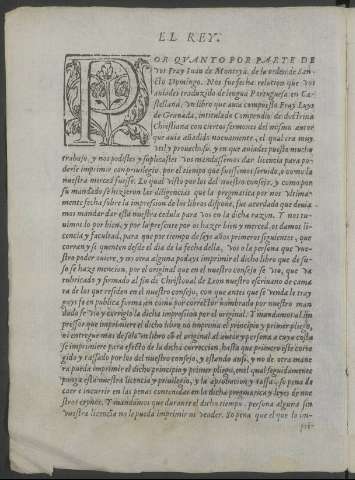 EL REY.
POR QVANTO POR PARTE DE
vos Fray Iuan de Montoya, de la orden de San-
cto Domingo. Nos fue fecha relacion que vos
auiades traduzido de lengua Portuguesa en Ca-
stellana, vn libro que auia compuesto Fray Luys
de Granada, intitulado Compendio de doctrina
Christiana con ciertos sermones del mismo autor
que auia añadido nueuamente, el qual era muy
vtil y prouechoso, y en que auiades puesto mucho
trabajo, y nos pedistes y suplicastes vos mandassemos dar licencia para po-
derle imprimir con priuilegio, por el tiempo que fuessemos seruido, o como la
nuestra merced fuesse. Lo qual visto por los del nuestro consejo, y como por
su mandado se hizieron las diligencias que la pragmatica por nos vltima-
mente fecha sobre la impression de los libros dispone, fue acordado que deuia-
mos mandar dar esta nuestra cedula para vos en la dicha razon. Y nos tu-
uimos lo por bien, y por la presente por os hazer bien y merced, os damos li-
cencia y facultad, para que por tiempo de seys años primeros siguientes, que
corran y se quenten desde el dia de la fecha della, vos o la persona que vue-
stro poder ouiere, y no otra alguna podays imprimir el dicho libro que de su-
so se haze mencion, por el original que en el nuestro consejo se vio, que va
rubricado y firmado al fin de Christoual de Leon nuestro escriuano de cama
ra de los que residen en el nuestro consejo, con que antes que se venda le tray
gays fe en publica forma en como por corrector nombrado por nuestro man
dado se vio y corrigio la dicha impression por el original. Y mandamos al im
pressor que imprimiere el dicho libro no imprima el principio y primer pliego,
ni entregue mas de solo vn libro con el original al autor y persona a cuya costa
se imprimiere para efecto de la dicha correccion, hasta que primero este corre
gido y tassado por los del nuestro consejo, y estando ansi, y no de otra mane
ra pueda imprimir el dicho principio y primer pliego, en el qual seguidamente
ponga esta nuestra licencia y priuilegio, y la aprobacion y tassa, so pena de
caer e incurrir en las penas contenidas en la dicha pregmatica y leyes de nue
stros reynos. Y mandamos que durante el dicho tiempo, persona alguna sin
vuestra licencia no le pueda imprimir ni vender. So pena que el que lo im-